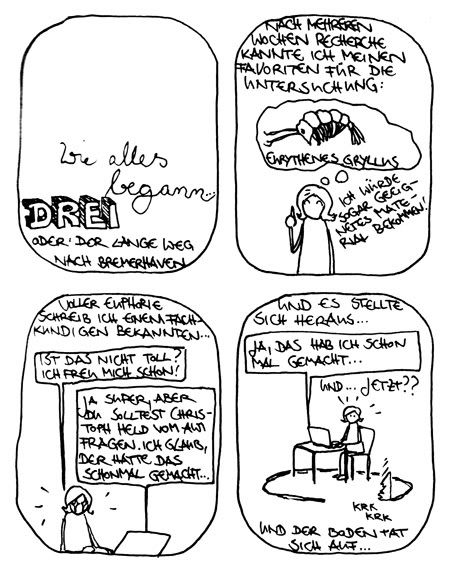 Wie alles
begann...
DREI
ODER: DER LANGE WEG
NACH BREMERHAVEN
NACH MEHREREN
WOCHEN RECHERCHE
KANNTE ICH MEINEN
FAVORITEN FÜR DIE
UNTERSUCHUNG:
EURYTHENES GRYLLUS
ICH WÜRDE
SOGAR GEEIG-
NETES MATE-
RIAL BEKOMMEN!
VOLLER EUPHORIE
SCHREIB ICH EINEM FACH-
KUNDIGEN BEKANNTEN...
IST DAS NICHT TOLL?
ICH FREU MICH SCHON!
JA SUPER, ABER
DU SOLLTEST CHRIS-
TOPH HELD VOM AWI
FRAGEN. ICH GLAUB,
DER HATTE DAS
SCHONMAL GEMACHT...
UND ES STELLTE
SICH HERAUS...
JA, DAS HAB ICH SCHON
MAL GEMACHT...
UND... JETZT??
KRK
KRK
UND DER BODEN TAT
SICH AUF...